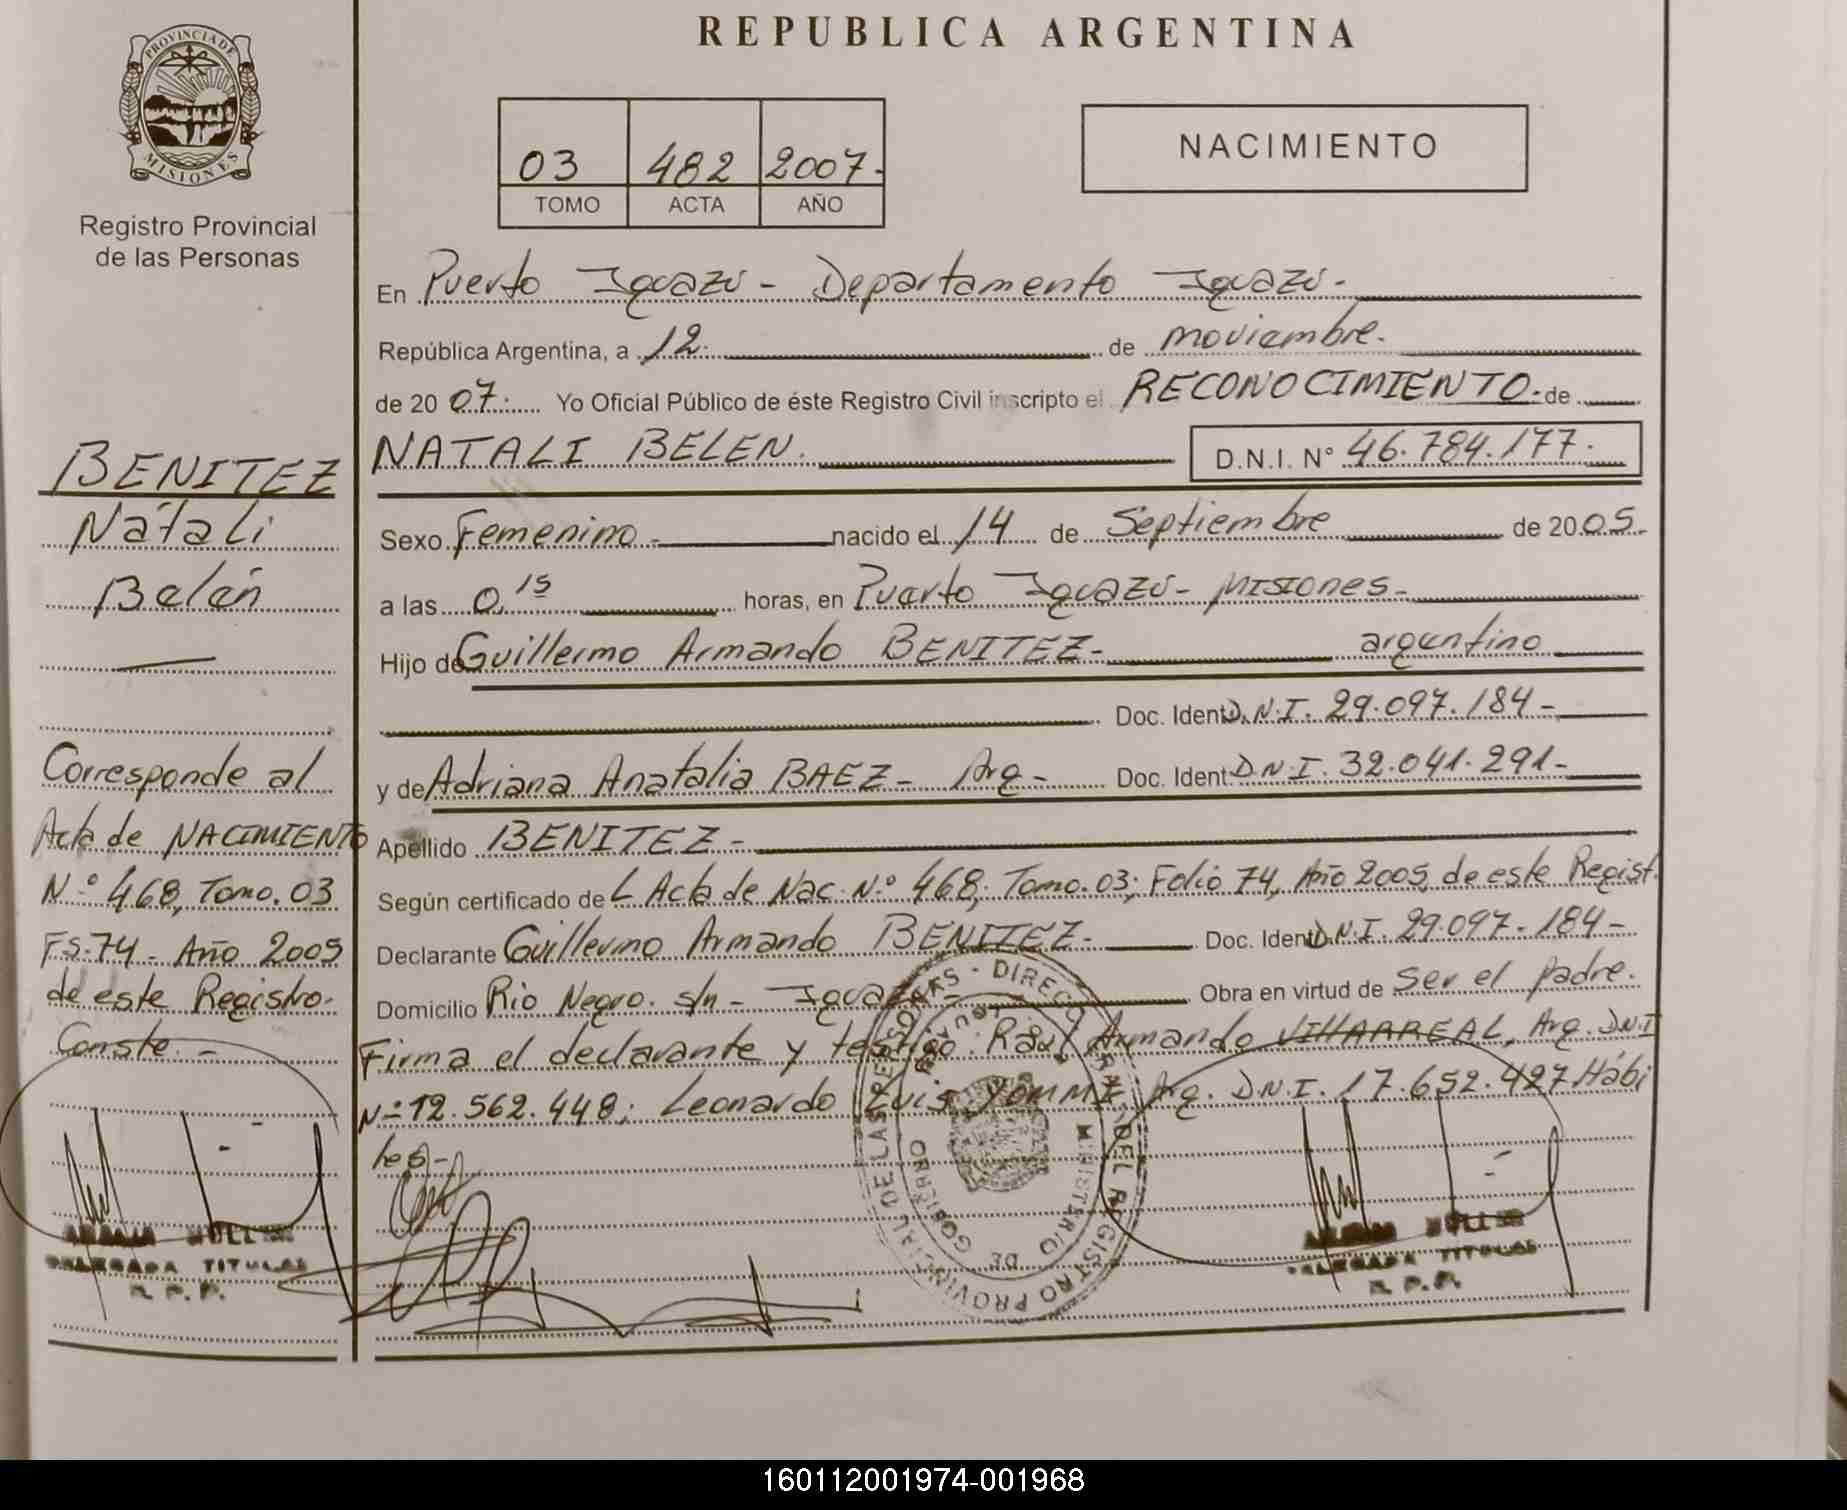 REPUBLICA ARGENTINA
PROVINCIA DE
MISIONES
Registro Provincial
de las Personas
03 482 2007.
TOMO ACTA AÑO
NACIMIENTO
En Puerto Iguazú - Departamento Iguazú -
República Argentina, a 12. de noviembre.
de 2007. Yo Oficial Público de éste Registro Civil inscripto el RECONOCIMIENTO. de
NATALI BELEN. D.N.I. Nº 46.784.177.
Sexo Femenino - nacido el 14 de Septiembre de 2005-
a las 0,15 horas, en Puerto Iguazú - MISIONES -
Hijo de Guillermo Armando BENITEZ - argentino
Doc. Ident. D.N.I. 29.097.184 -
y de Adriana Anatalia BAEZ - Arg - Doc. Ident. D.N.I. 32.041.291 -
Apellido BENITEZ -
Según certificado de L Acta de Nac. N.º 468; Tomo. 03; Folio 74, Año 2005, de este Regist.
Declarante Guillermo Armando BENITEZ - Doc. Ident. D.N.I. 29.097.184 -
Domicilio Rio Negro. s/n - Iguazú - Obra en virtud de ser el padre.
Firma el declarante y testigo: Raúl Armando VILLARREAL, Arg. D.N.I
Nº 12.562.448; Leonardo Luis YOMMI, Arg. D.N.I. 17.652.427 Hábi
les -
BENITEZ
Natali
Belén
Corresponde al
Acta de NACIMIENTO
N.º 468, Tomo. 03
FS. 74 - Año 2005
de este Registro.
Conste. -
MULLER
DELEGADA TITULAR
R. P. P.
DIRECCION GENERAL DEL REGISTRO PROVINCIAL DE LAS PERSONAS
MINISTERIO DE GOBIERNO
MULLER
DELEGADA TITULAR
R. P. P.
160112001974-001968